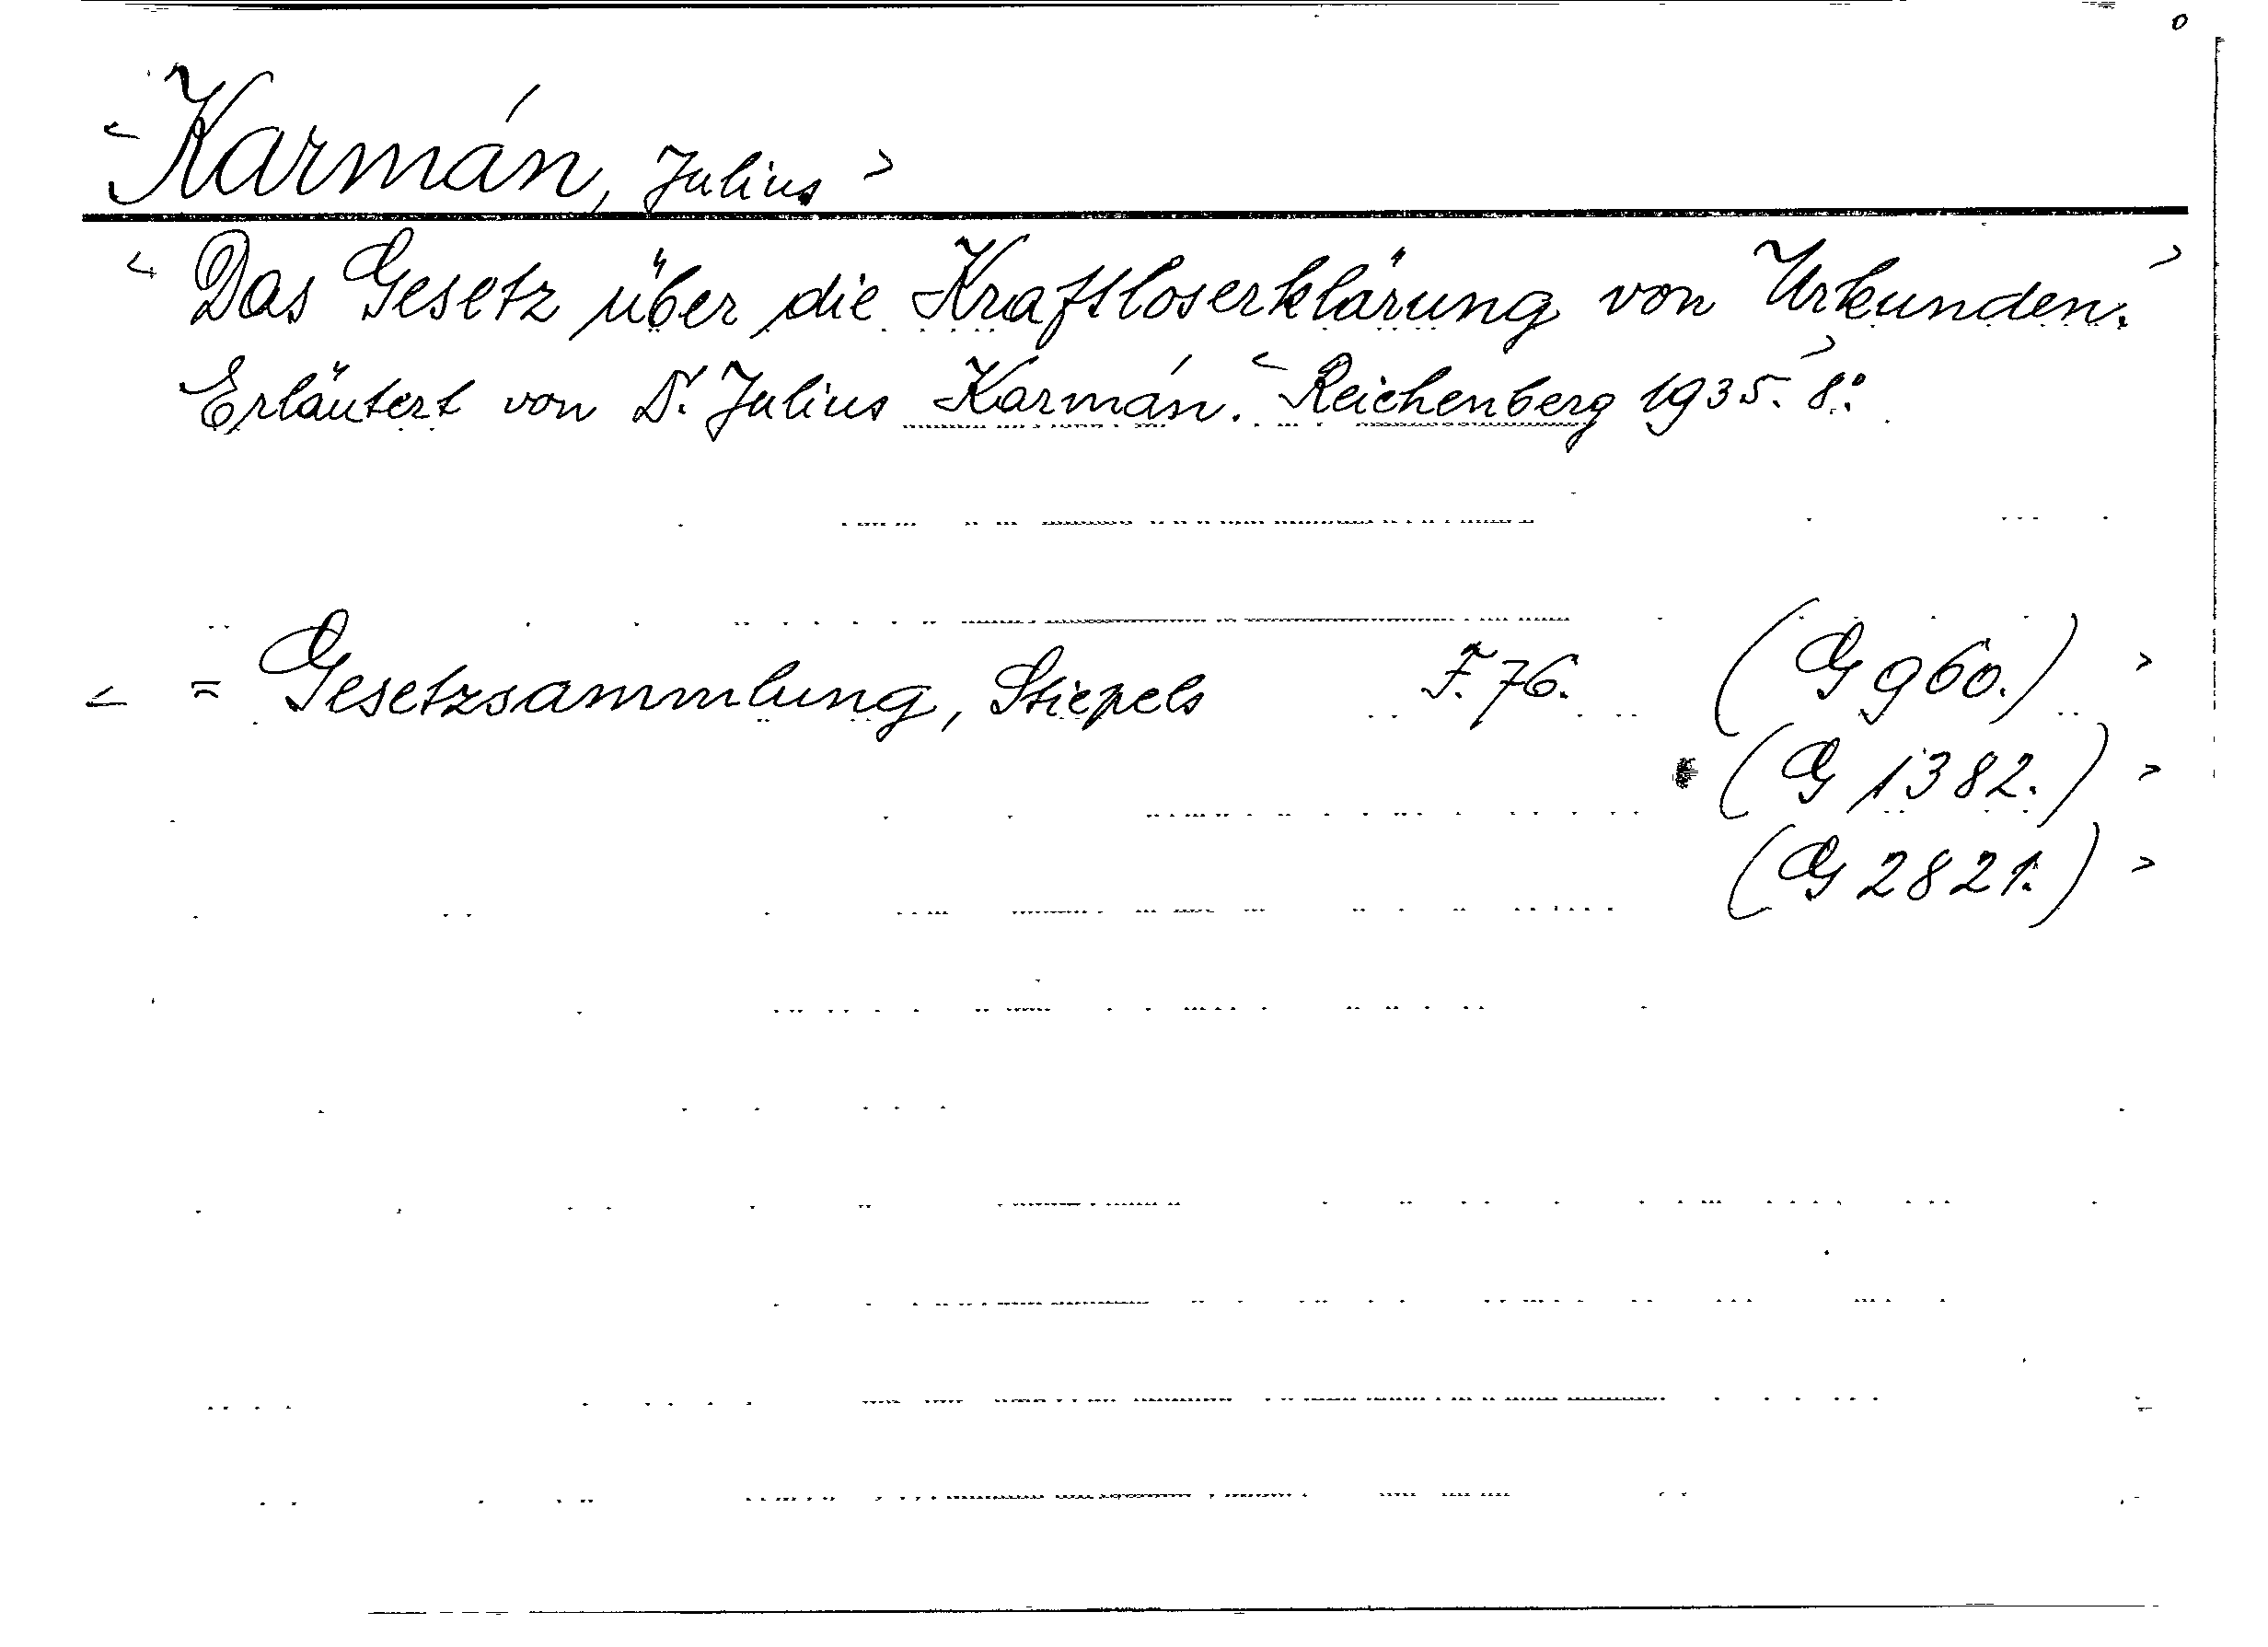 <Karmán, Julius>
<Das Gesetz über die Kraftloserklärung von Urkunden.>
Erläutert von Dr. Julius Karmán. <Reichenberg 1935.> 8°.
< = Gesetzsammlung, Stiepels F. 76. (G 960.) >
(G 1382.) >
(G 2821.) >